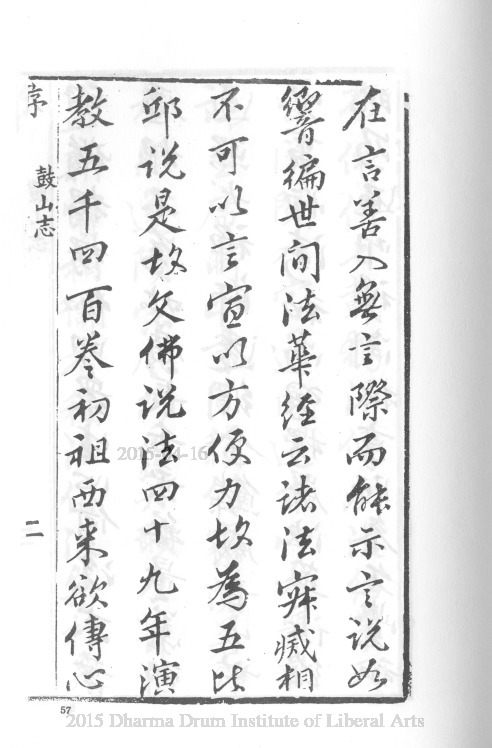 在言善入無言際而能示言說如
響徧世间法華経云诸法寂滅相
不可以言宣以方便力故為五比
邱説是故文佛説法四十九年演
教五千四百卷初祖西来欲傳心
序
鼓山志
二
57
2015-04-16
2015 Dharma Drum Institute of Liberal Arts